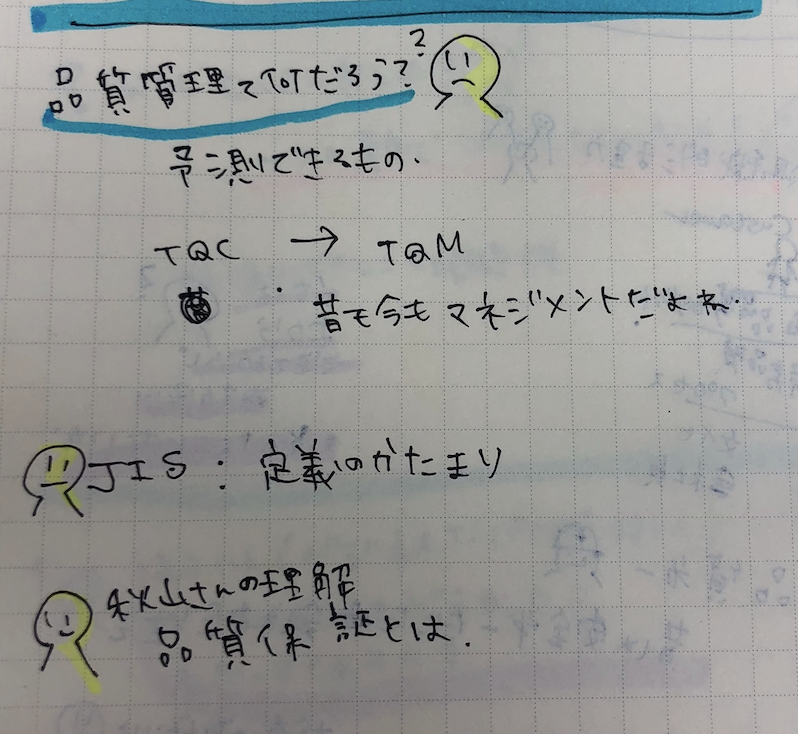 品質管理って何だろう??
予測できるもの.
TQC → TQM
昔も今もマネジメントだよね.
JIS : 定義のかたまり
秋山さんの理解
品質保証とは.